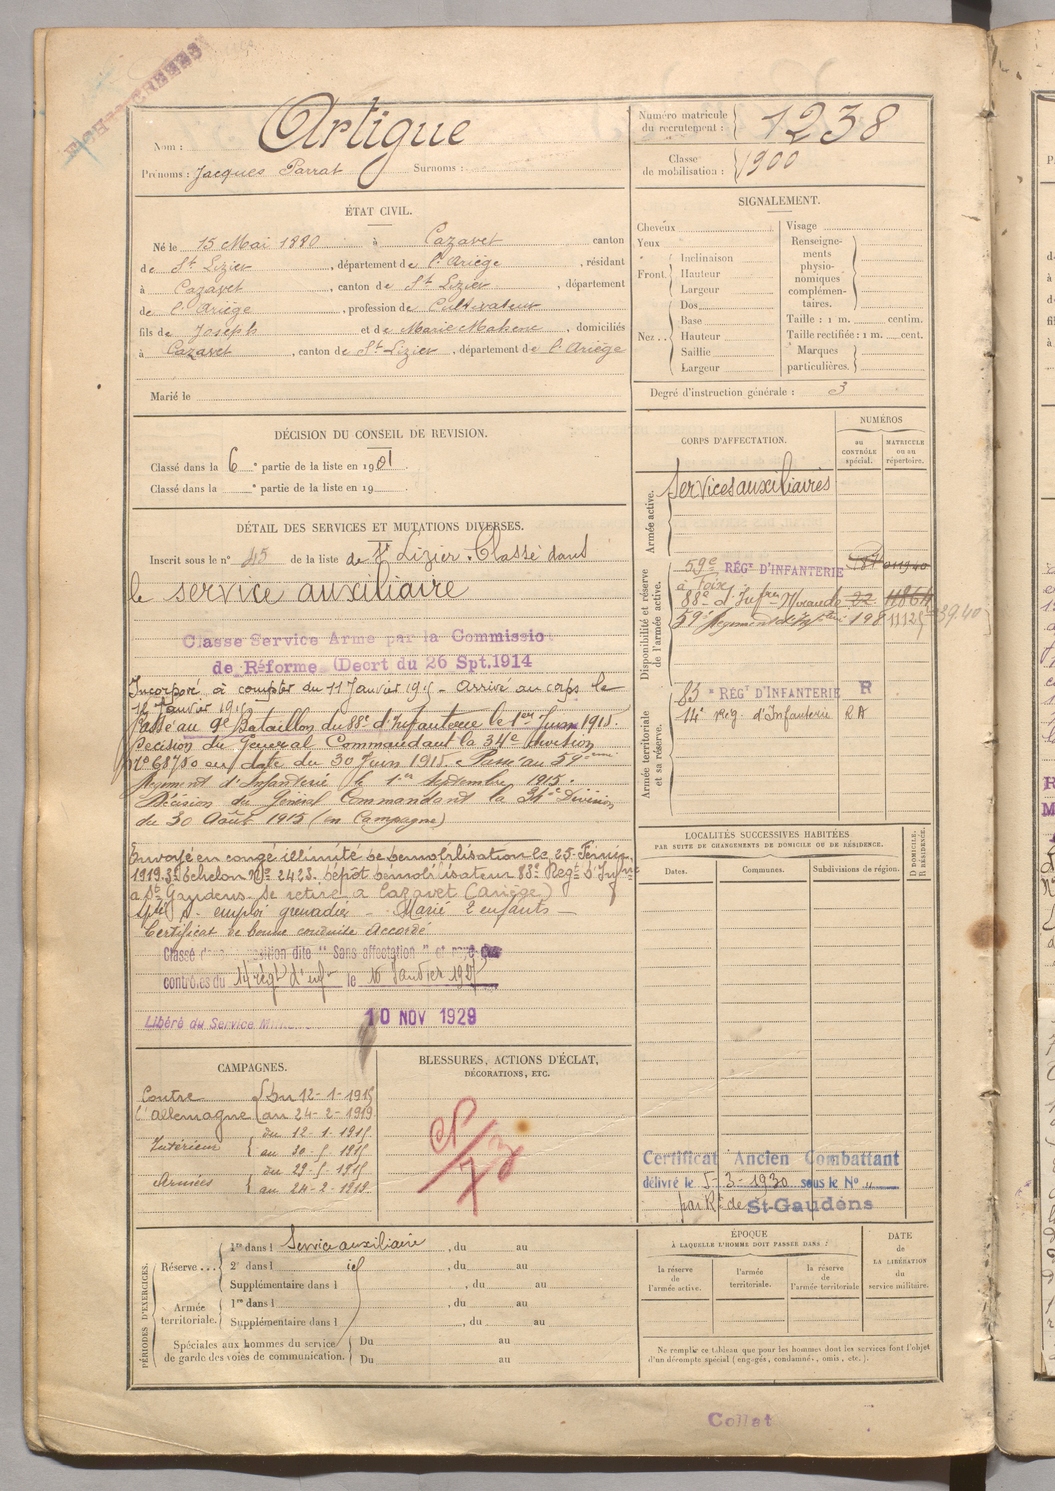 Nom : Artigue
Prénoms : Jacques Parrat Surnoms :
Numéro matricule du recrutement : 1238
Classe de mobilisation : 1900
ÉTAT CIVIL.
Né le 15 Mai 1880 à Cazavet canton
de St Lizier, département de l'Ariège, résidant
à Cazavet, canton de St Lizier, département
de l'Ariège, profession de Cultivateur
fils de Joseph et de Marie, domiciliés
à Cazavet, canton de St Lizier, département de l'Ariège
Marié le
SIGNALEMENT.
Cheveux
Yeux
Front
Inclinaison
Hauteur
Largeur
Nez
Dos
Base
Hauteur
Saillie
Largeur
Visage
Renseigne-
ments
physio-
nomiques
complémen-
taires.
Taille : 1 m. centim.
Taille rectifiée : 1 m. cent.
Marques
particulières.
Degré d'instruction générale : 3
DÉCISION DU CONSEIL DE REVISION.
Classé dans la 6e partie de la liste en 1901.
Classé dans la e partie de la liste en 19
DÉTAIL DES SERVICES ET MUTATIONS DIVERSES.
Inscrit sous le n° 45 de la liste de St Lizier. Classé dans
le service auxiliaire
Classe Service Arme par la Commissio
de Réforme (Decrt du 26 Spt.1914
Incorporé à compter du 11 Janvier 1915 - Arrivé au corps le
12 Janvier 1915
Passé au 9e Bataillon du 88e d'Infanterie le 1er Juin 1915.
Décision du Général Commandant la 34e division
N° 6870 en date du 30 Juin 1915. Passé au 59ème
Régiment d'Infanterie le 1er Septembre 1915.
Décision du Général Commandant la 34e Division
du 30 Août 1915 (en Campagne)
Envoyé en congé illimité de démobilisation le 25 Février
1919. 3e échelon N° 2428. Dépôt démobilisateur 83e Régt d'Infrie
à St Gaudens. Se retire à Cazavet (Ariège)
emploi grenadier - Marié 2 enfants -
Certificat de bonne conduite Accordé
Classé dans position dite "Sans affectation" et rayé des
contrôles du 14 régt d'infie le 10 Janvier 1927
Libéré du Service 10 NOV 1929
CORPS D'AFFECTATION.
NUMÉROS
au
CONTRÔLE
spécial.
MATRICULE
ou au
répertoire.
Armée active.
Services auxiliaires
Disponibilité et réserve
de l'armée active.
59e RÉGt D'INFANTERIE
à Foix
88e d'Infrie Mirande 22 11864
59e Régiment d'Infterie 198 11125
Armée territoriale
et sa réserve.
83e RÉGt D'INFANTERIE R
14e Rég. d'Infanterie R A
LOCALITÉS SUCCESSIVES HABITÉES
PAR SUITE DE CHANGEMENTS DE DOMICILE OU DE RÉSIDENCE.
Dates. Communes. Subdivisions de région.
D DOMICILE.
R RÉSIDENCE.
CAMPAGNES.
Contre l'Allemagne
du 12-1-1915
au 24-2-1919
Intérieur
du 12-1-1915
au 30-5-1915
Armées
du 29-5-1915
au 24-2-1919
BLESSURES, ACTIONS D'ÉCLAT,
DÉCORATIONS, ETC.
Certificat Ancien Combattant
délivré le 5-3-1930 sous le N° "
par Rt de St-Gaudens
PÉRIODES D'EXERCICES.
Réserve
1re dans l Service auxiliaire, du au
2e dans l id, du au
Supplémentaire dans l, du au
Armée
territoriale.
1re dans l, du au
Supplémentaire dans l, du au
Spéciales aux hommes du service
de garde des voies de communication.
Du au
Du au
ÉPOQUE
À LAQUELLE L'HOMME DOIT PASSER DANS :
la réserve
de
l'armée active.
l'armée
territoriale.
la réserve
de
l'armée territoriale
DATE
de
LA LIBÉRATION
du
service militaire.
Ne remplir ce tableau que pour les hommes dont les services font l'objet
d'un décompte spécial (engagés, condamnés, omis, etc.).
Collat